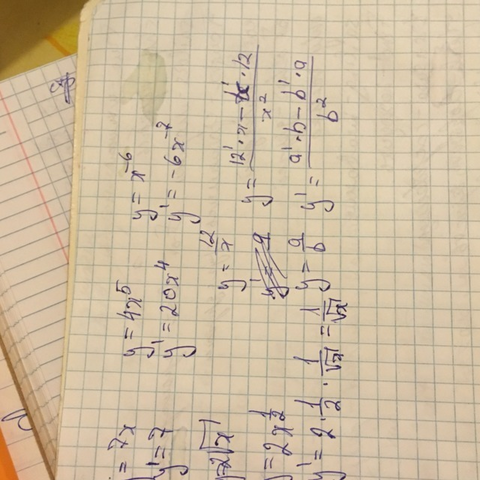 y = 7x
y' = 7
y = 4x⁵
y' = 20x⁴
y = x⁻⁶
y' = -6x⁻⁷
y = 2√x
y = 2x^½
y' = 2 · 1/2 · 1/√x = 1/√x
y = 12/x
y = (12' · x - x' · 12)/x²
y = a/b
y' = (a' · b - b' · a)/b²